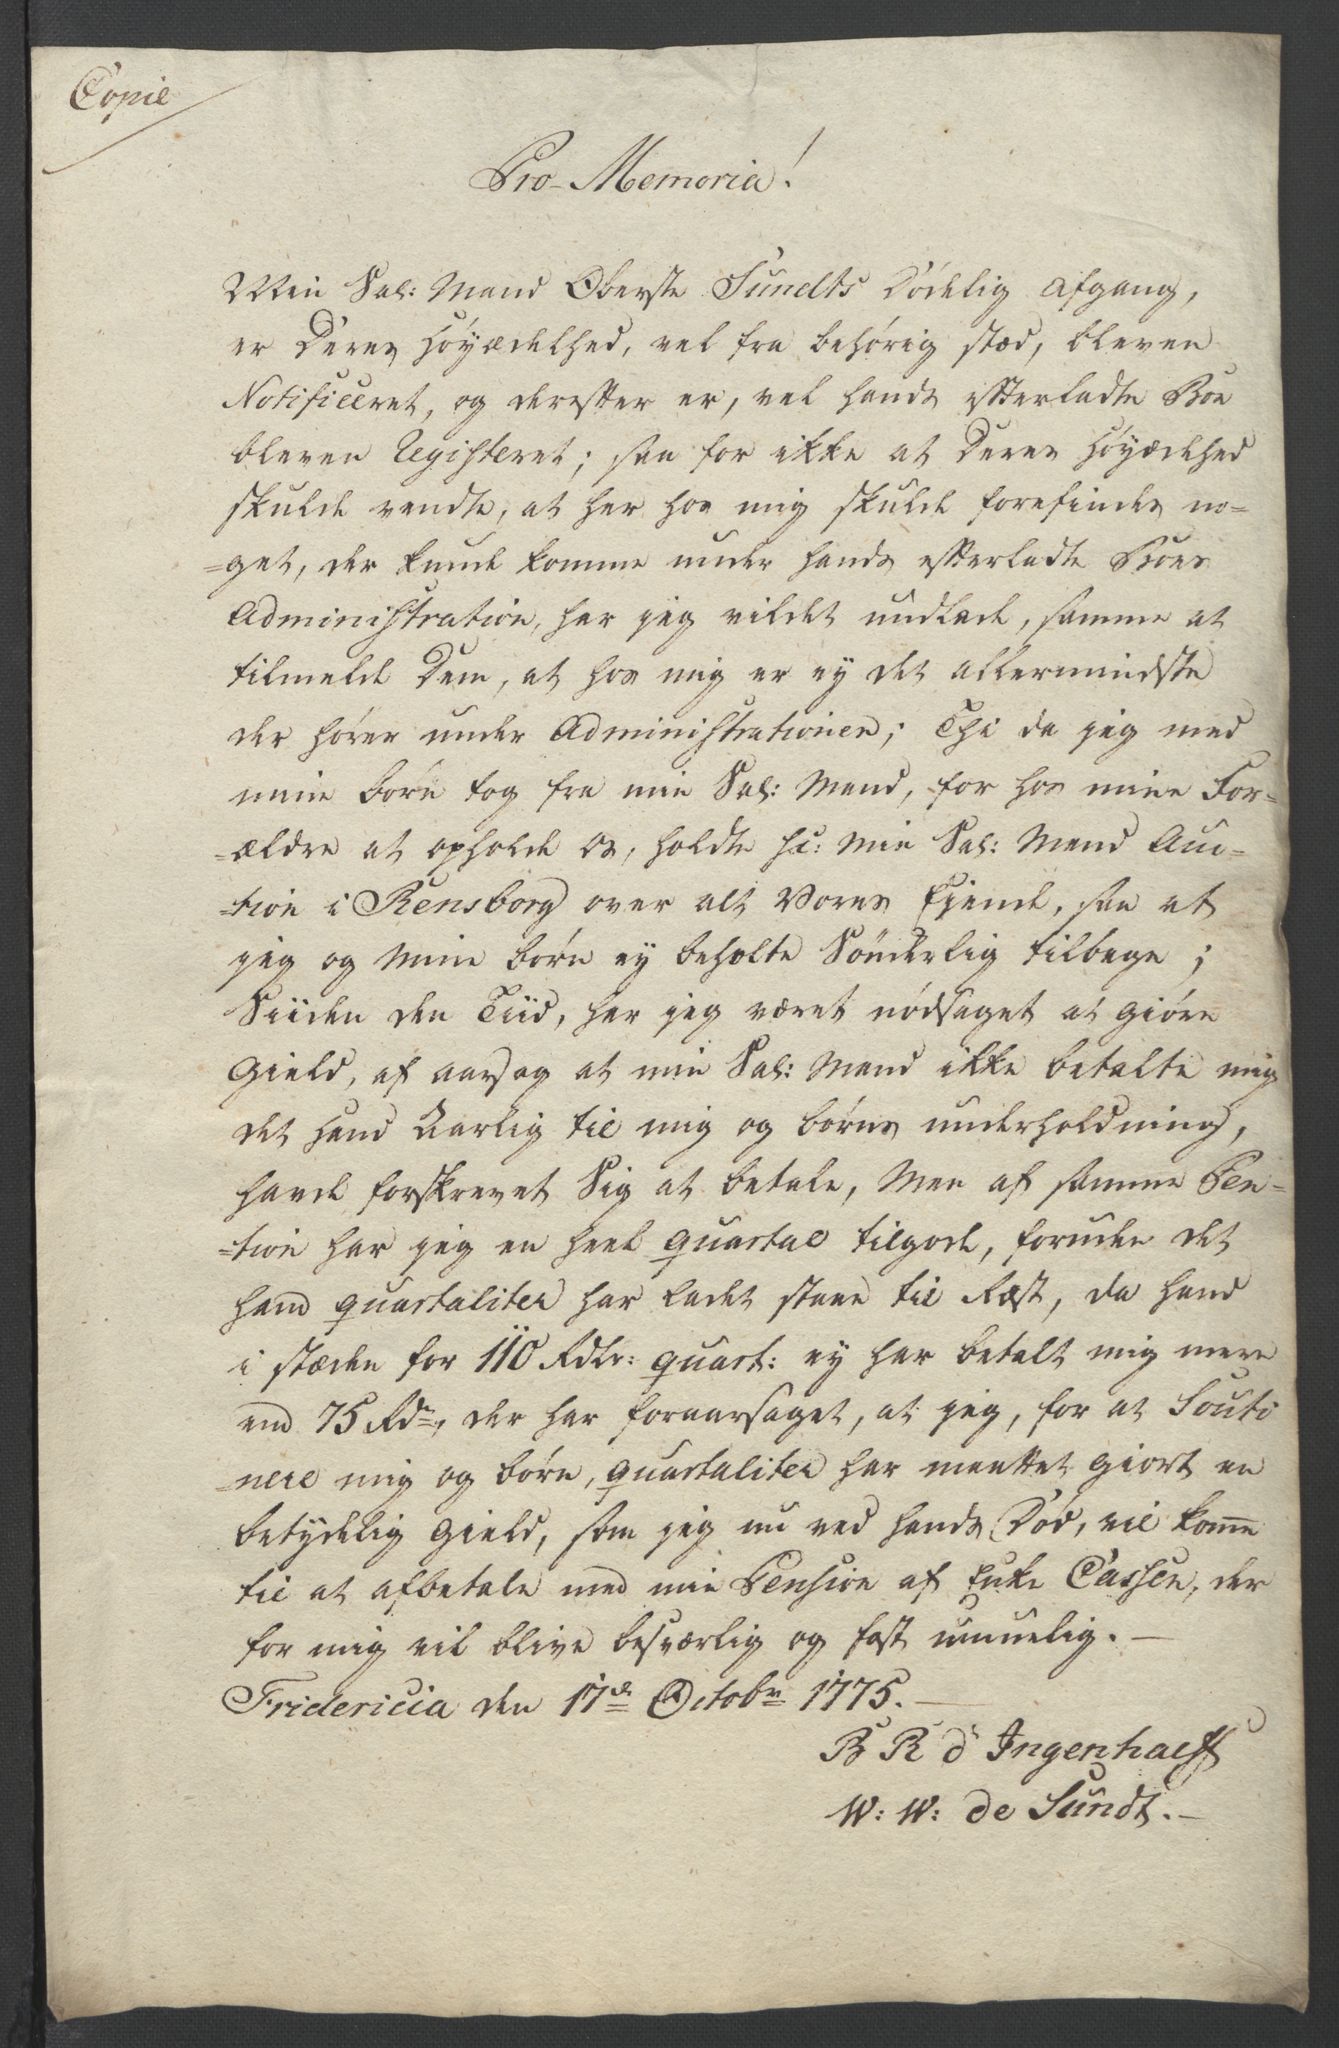 Copie
Pro Memoria!
Min Sal: Mand Oberste Sundts Dødelig afgang,
er Deres Høyædelhed, vel fra behørig stæd, bleven
Notificeret, og derefter er, vel hands efterladte Boe
bleven Registeret; saa for ikke at Deres Høyædelhed
skulde vendte, at her hos mig skulde forefindes no-
=get, der kunde komme under hands efterladte Boes
Administration, har jeg vildet undlade, samme at
tilmelde Dem, at hos mig er ey det allermindste
der hører under Administrationen; Thi da jeg med
mine børn tog fra min Sal: Mand, for hos mine For-
=ældre at opholde os, holdte hr: min Sal: Mand Auc-
=tion i Rensborg over alt Vores Ejende, saa at
jeg og mine børn ey beholte Sönderlig tilbage;
Siiden den Tiid, har jeg været nødsaget at giøre
Gield, af aarsag at min Sal: Mand ikke betalte mig
det hand Aarlig til mig og børns underholdning,
havde forskrevet Sig at betale, Men af samme Pen-
=tion har jeg en heel quartal tilgode, foruden det
hand quartaliter har ladet staae til Ræst, da hand
i stæden for 110 Rdlr: quart: ey har betalt mig mere
end 75 Rdr, der har foraarsaget, at jeg, for at Souti
=nere mig og børn, quartaliter har maattet giort en
betydelig Gield, som jeg nu ved hands Død, vil kom̅e
til at afbetale med min Pension af Enke Cassen, der
for mig vil blive besværlig og fast umuelig. —
Fridericia den 17de Octobr 1775. —
B R d' Ingenhaeff
W: W: de Sundt. —